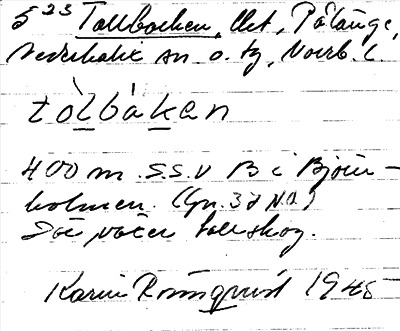 5²³ Tallbacken, tlet, Pålänge,
Nederkalix sn o. tg, Norrb. l.
tòlbàken
400 m. S.S.V B i Björn-
holmen. (Gn. 3d N.O.)
Där växer tallskog.
Karin Rönnqvist 1945